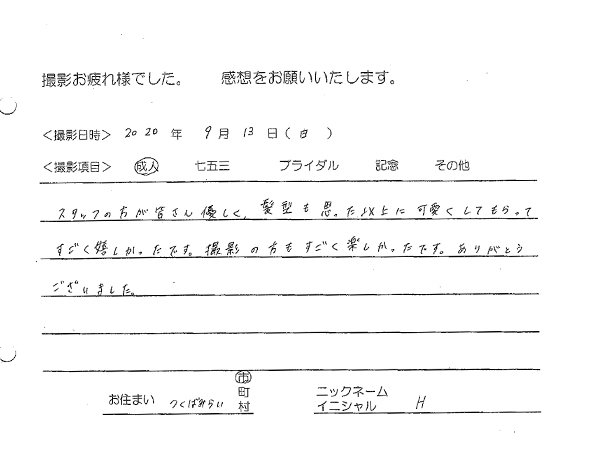 撮影お疲れ様でした。 感想をお願いいたします。
<撮影日時> 2020 年 9 月 13 日 ( 日 )
<撮影項目> 成人 七五三 ブライダル 記念 その他
スタッフの方が皆さん優しく、髪型も思った以上に可愛くしてもらって
すごく嬉しかったです。撮影の方もすごく楽しかったです。ありがとう
ございました。
お住まい つくばみらい 市 町 村 ニックネーム イニシャル H